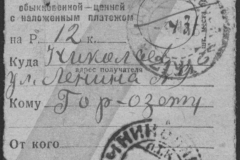 обыкновенной-ценней
с наложенным платежом
на Р 12 к.
Куда Николаев
адрес получателя
ул. Ленина
Кому Гор-озету
От кого